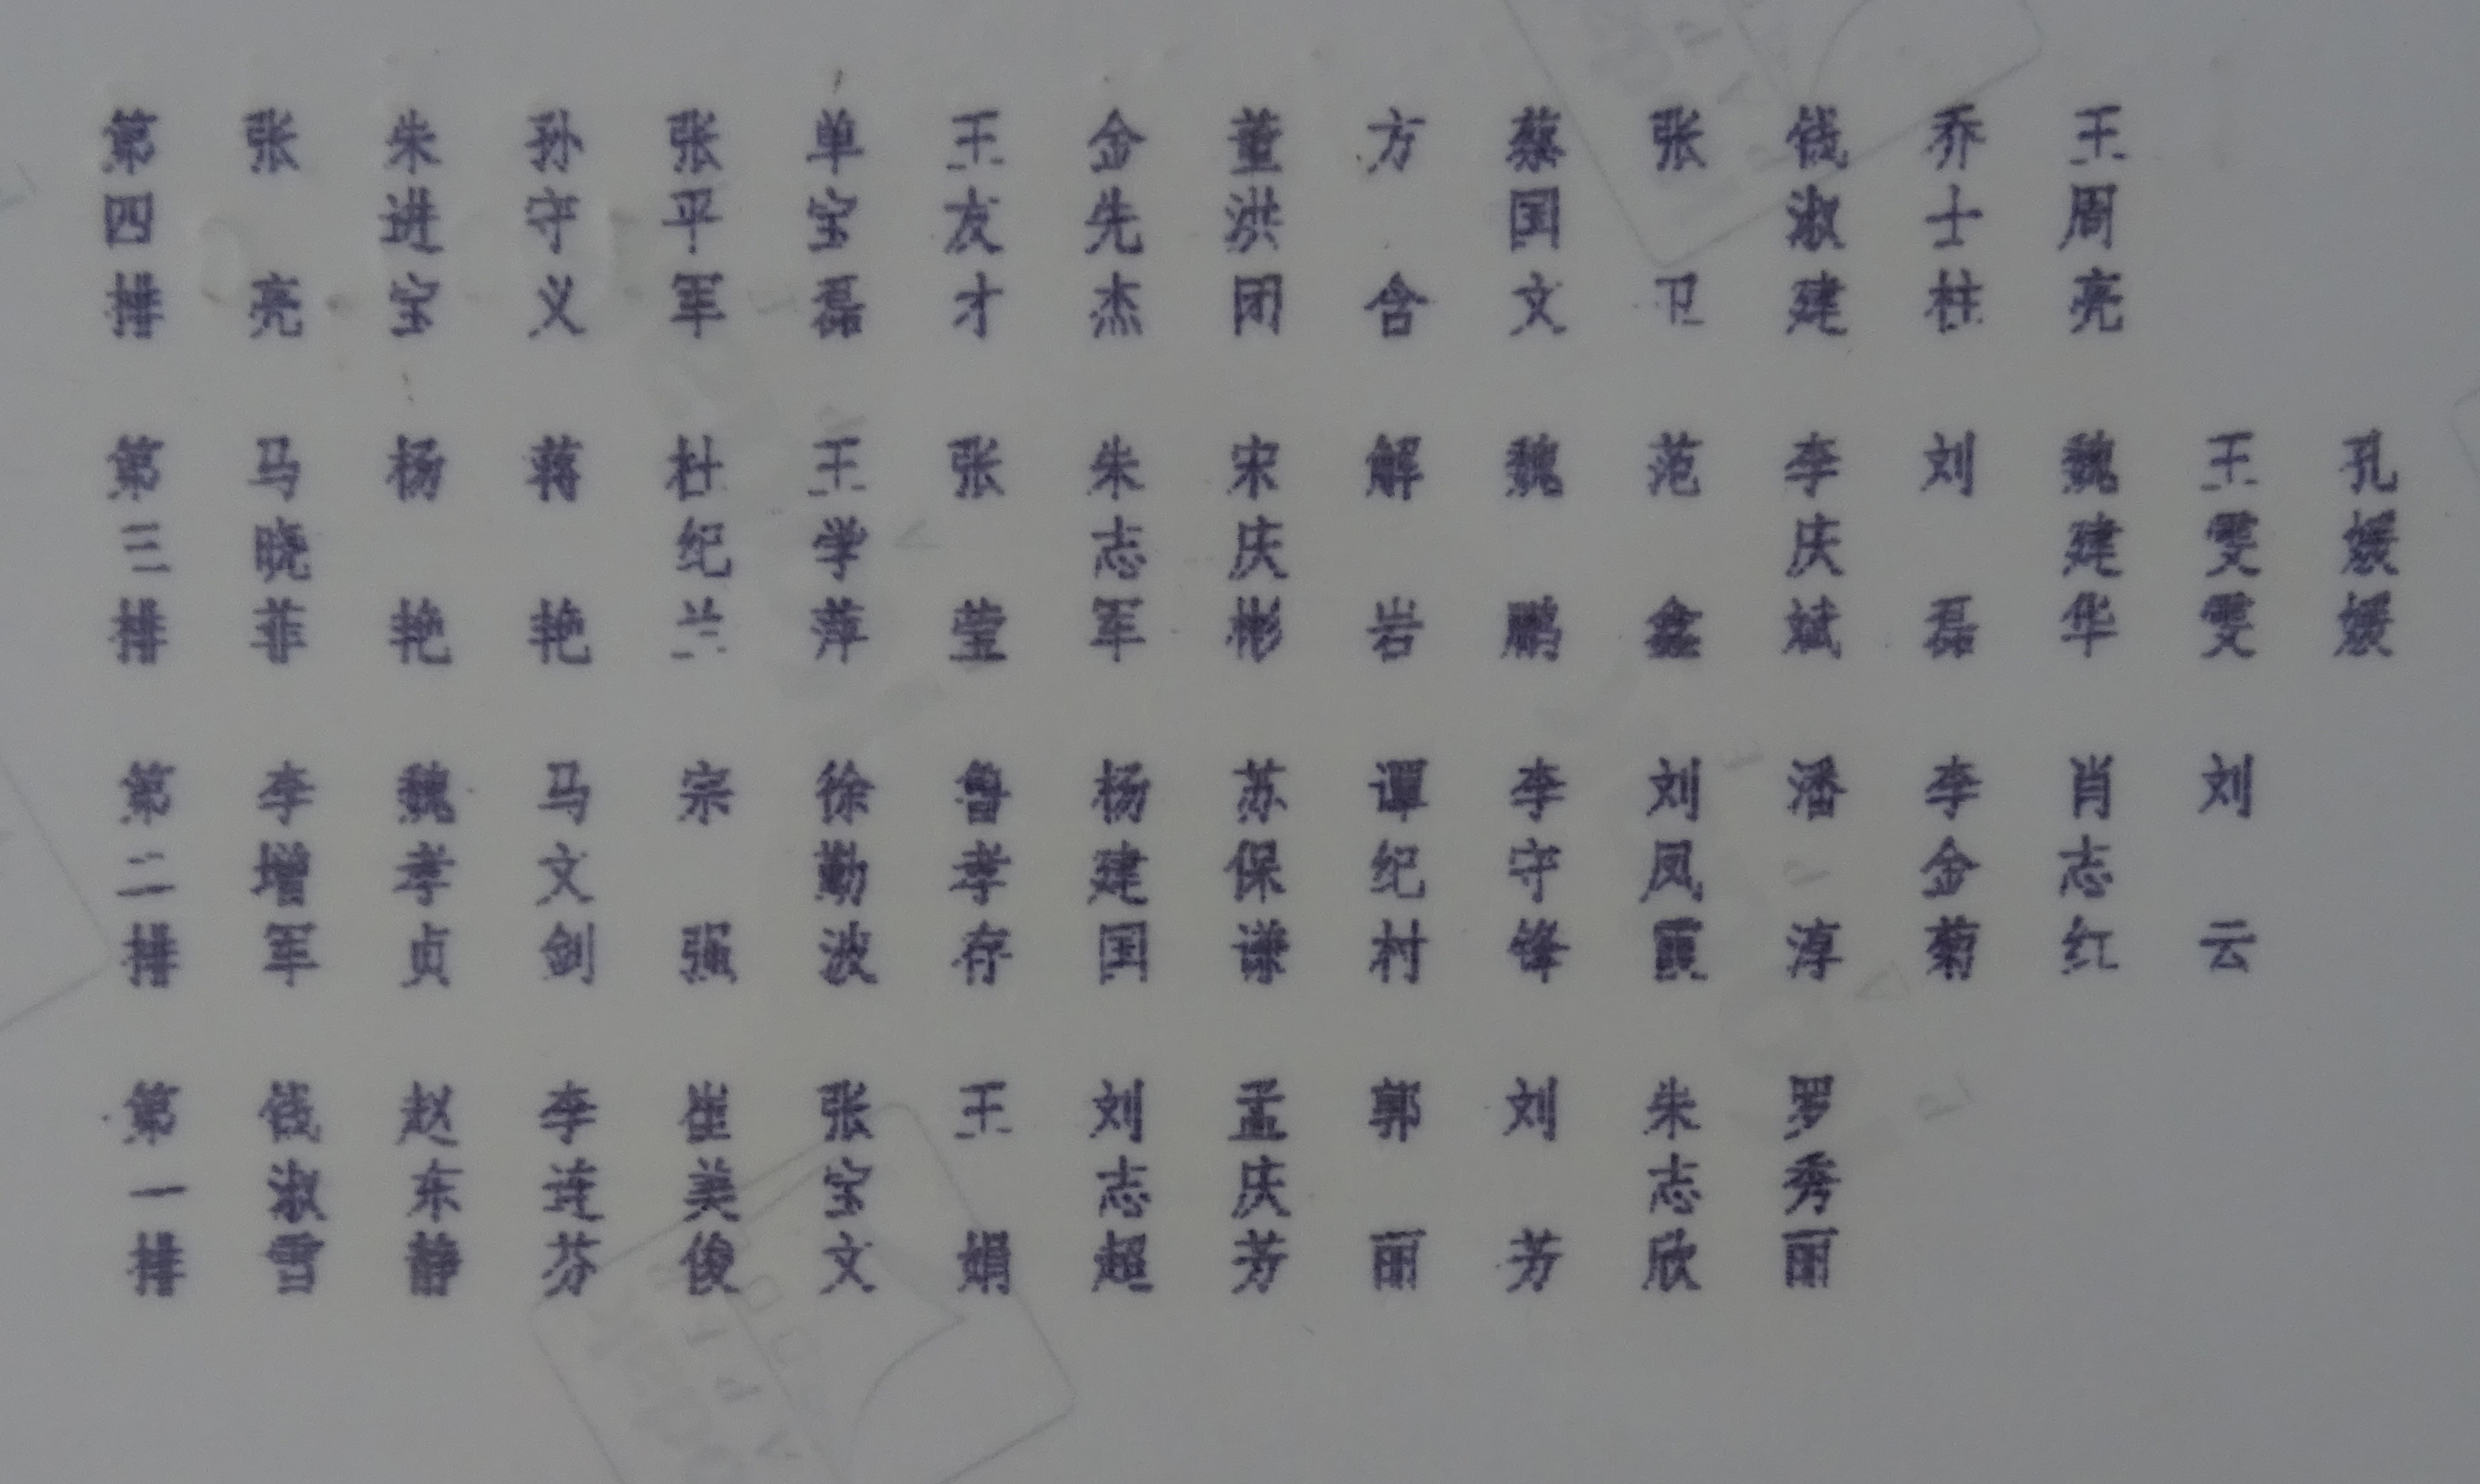 第四排 张亮 朱进宝 孙守义 张平军 单宝磊 王友才 金先杰 董洪团 方含 蔡国文 张卫 钱淑建 乔士柱 王周亮
第三排 马晓菲 杨艳 蒋艳 杜纪兰 王学萍 张莹 朱志军 宋庆彬 解岩 魏鹏 范鑫 李庆斌 刘磊 魏建华 王雯雯 孔媛媛
第二排 李增军 魏孝贞 马文剑 宗强 徐勤波 鲁孝存 杨建国 苏保谦 谭纪村 李守锋 刘凤霞 潘淳 李金菊 肖志红 刘云
第一排 钱淑雪 赵东静 李连芬 崔美俊 张宝文 王娟 刘志超 孟庆芳 郭丽 刘芳 朱志欣 罗秀丽